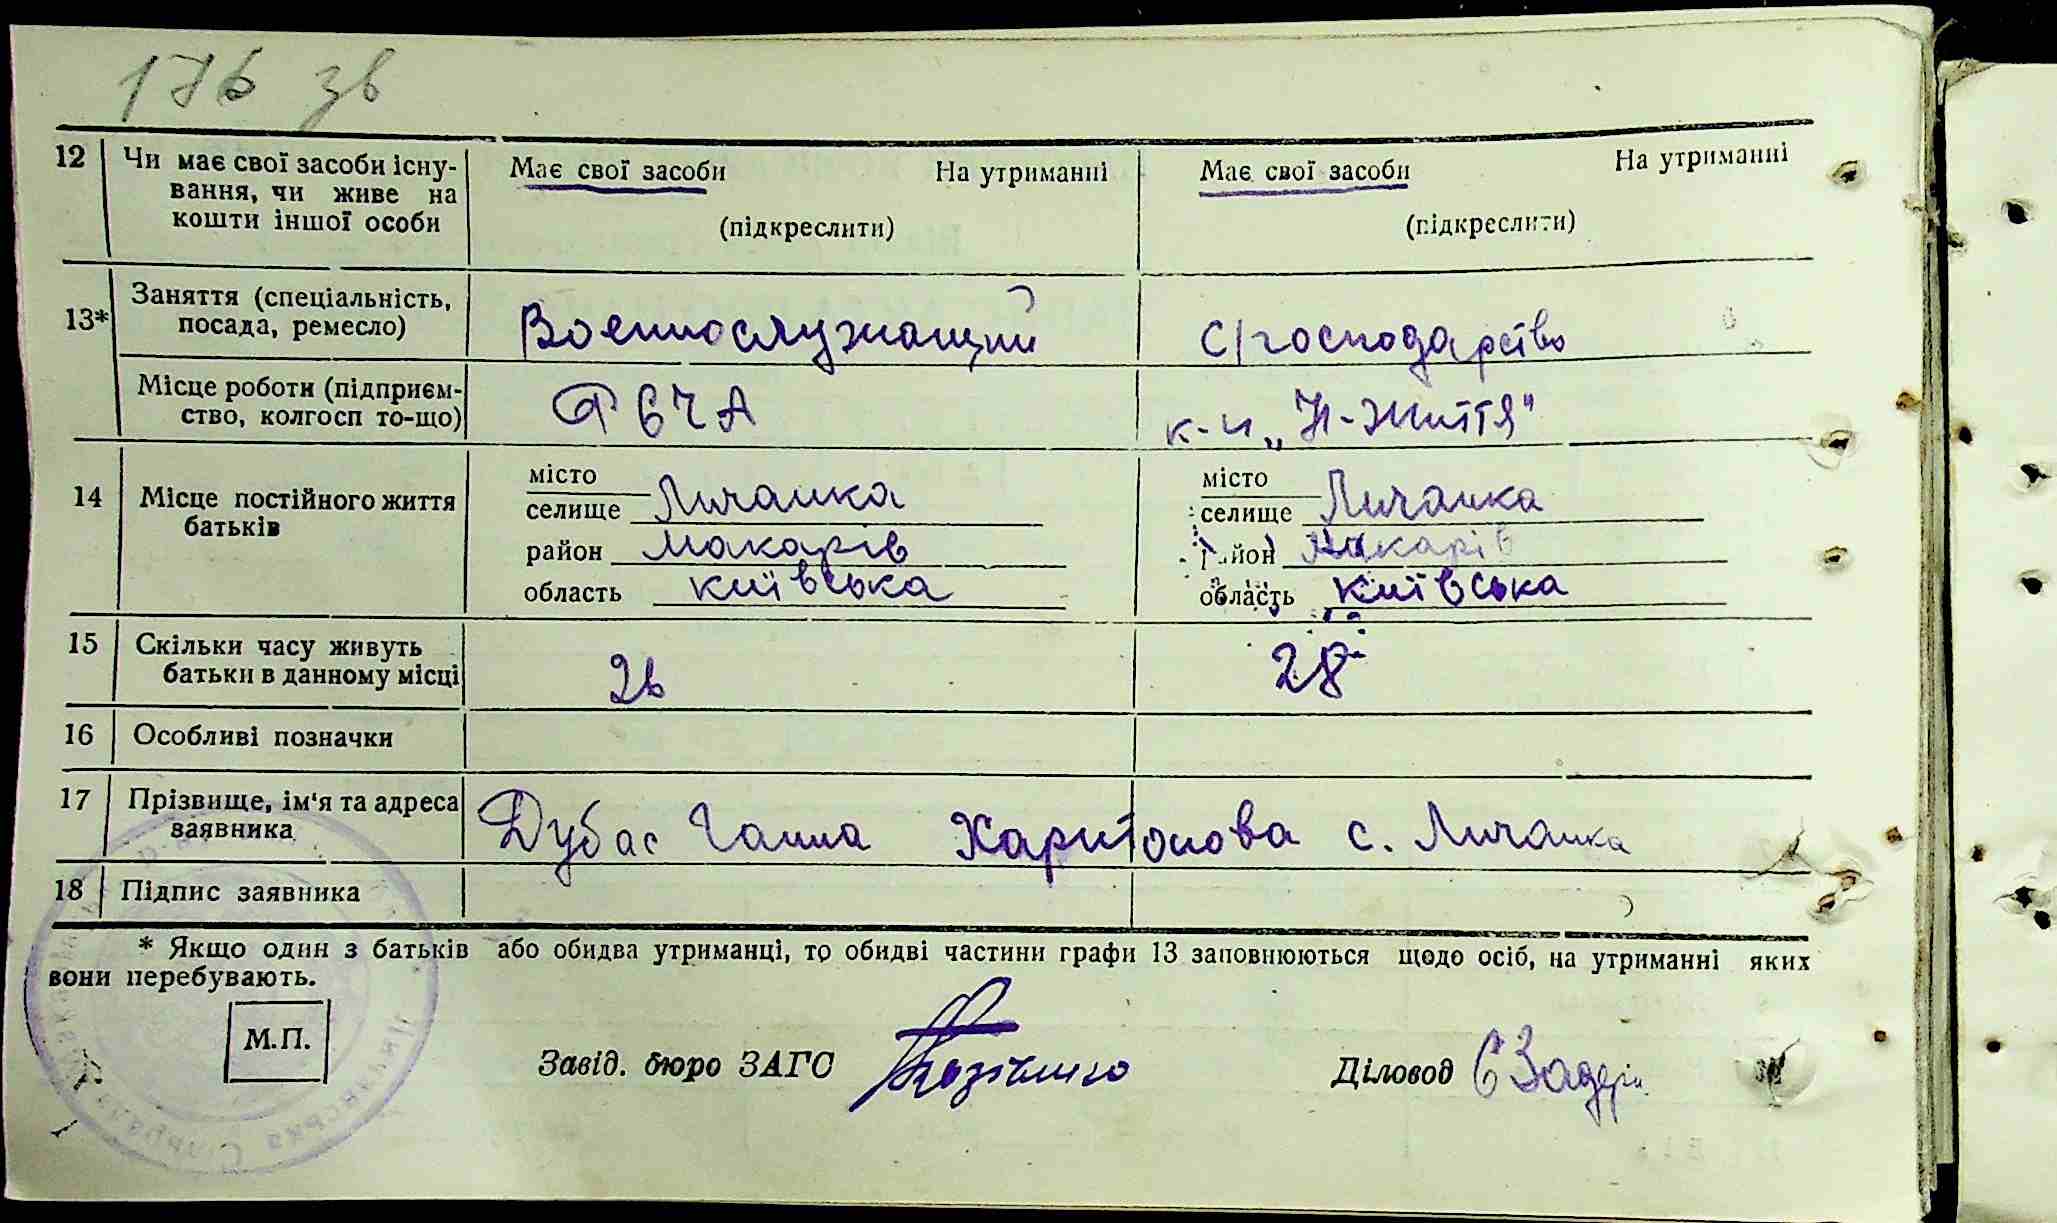 176 зв
12 Чи має свої засоби існу-
вання, чи живе на
кошти іншої особи
Має свої засоби На утриманні
(підкреслити)
Має свої засоби На утриманні
(підкреслити)
13* Заняття (спеціальність,
посада, ремесло)
Военнослужащий
с/господарство
Місце роботи (підприєм-
ство, колгосп то-що)
РБЧА
к-п „Н-Життя"
14 Місце постійного життя
батьків
місто
селище Личанка
район Макарів
область київська
місто
селище Личанка
район Макарів
область київська
15 Скільки часу живуть
батьки в данному місці
26
28
16 Особливі позначки
17 Прізвище, ім'я та адреса
заявника
Дубас Ганна Харитонова с. Личанка
18 Підпис заявника
* Якщо один з батьків або обидва утриманці, то обидві частини графи 13 заповнюються щодо осіб, на утриманні яких
вони перебувають.
М.П.
Завід. бюро ЗАГС
Діловод